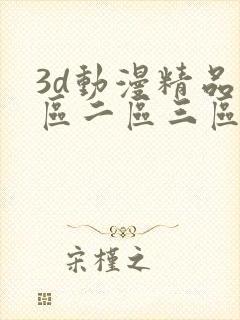 3d動漫精品
區二區三區
宋槿之